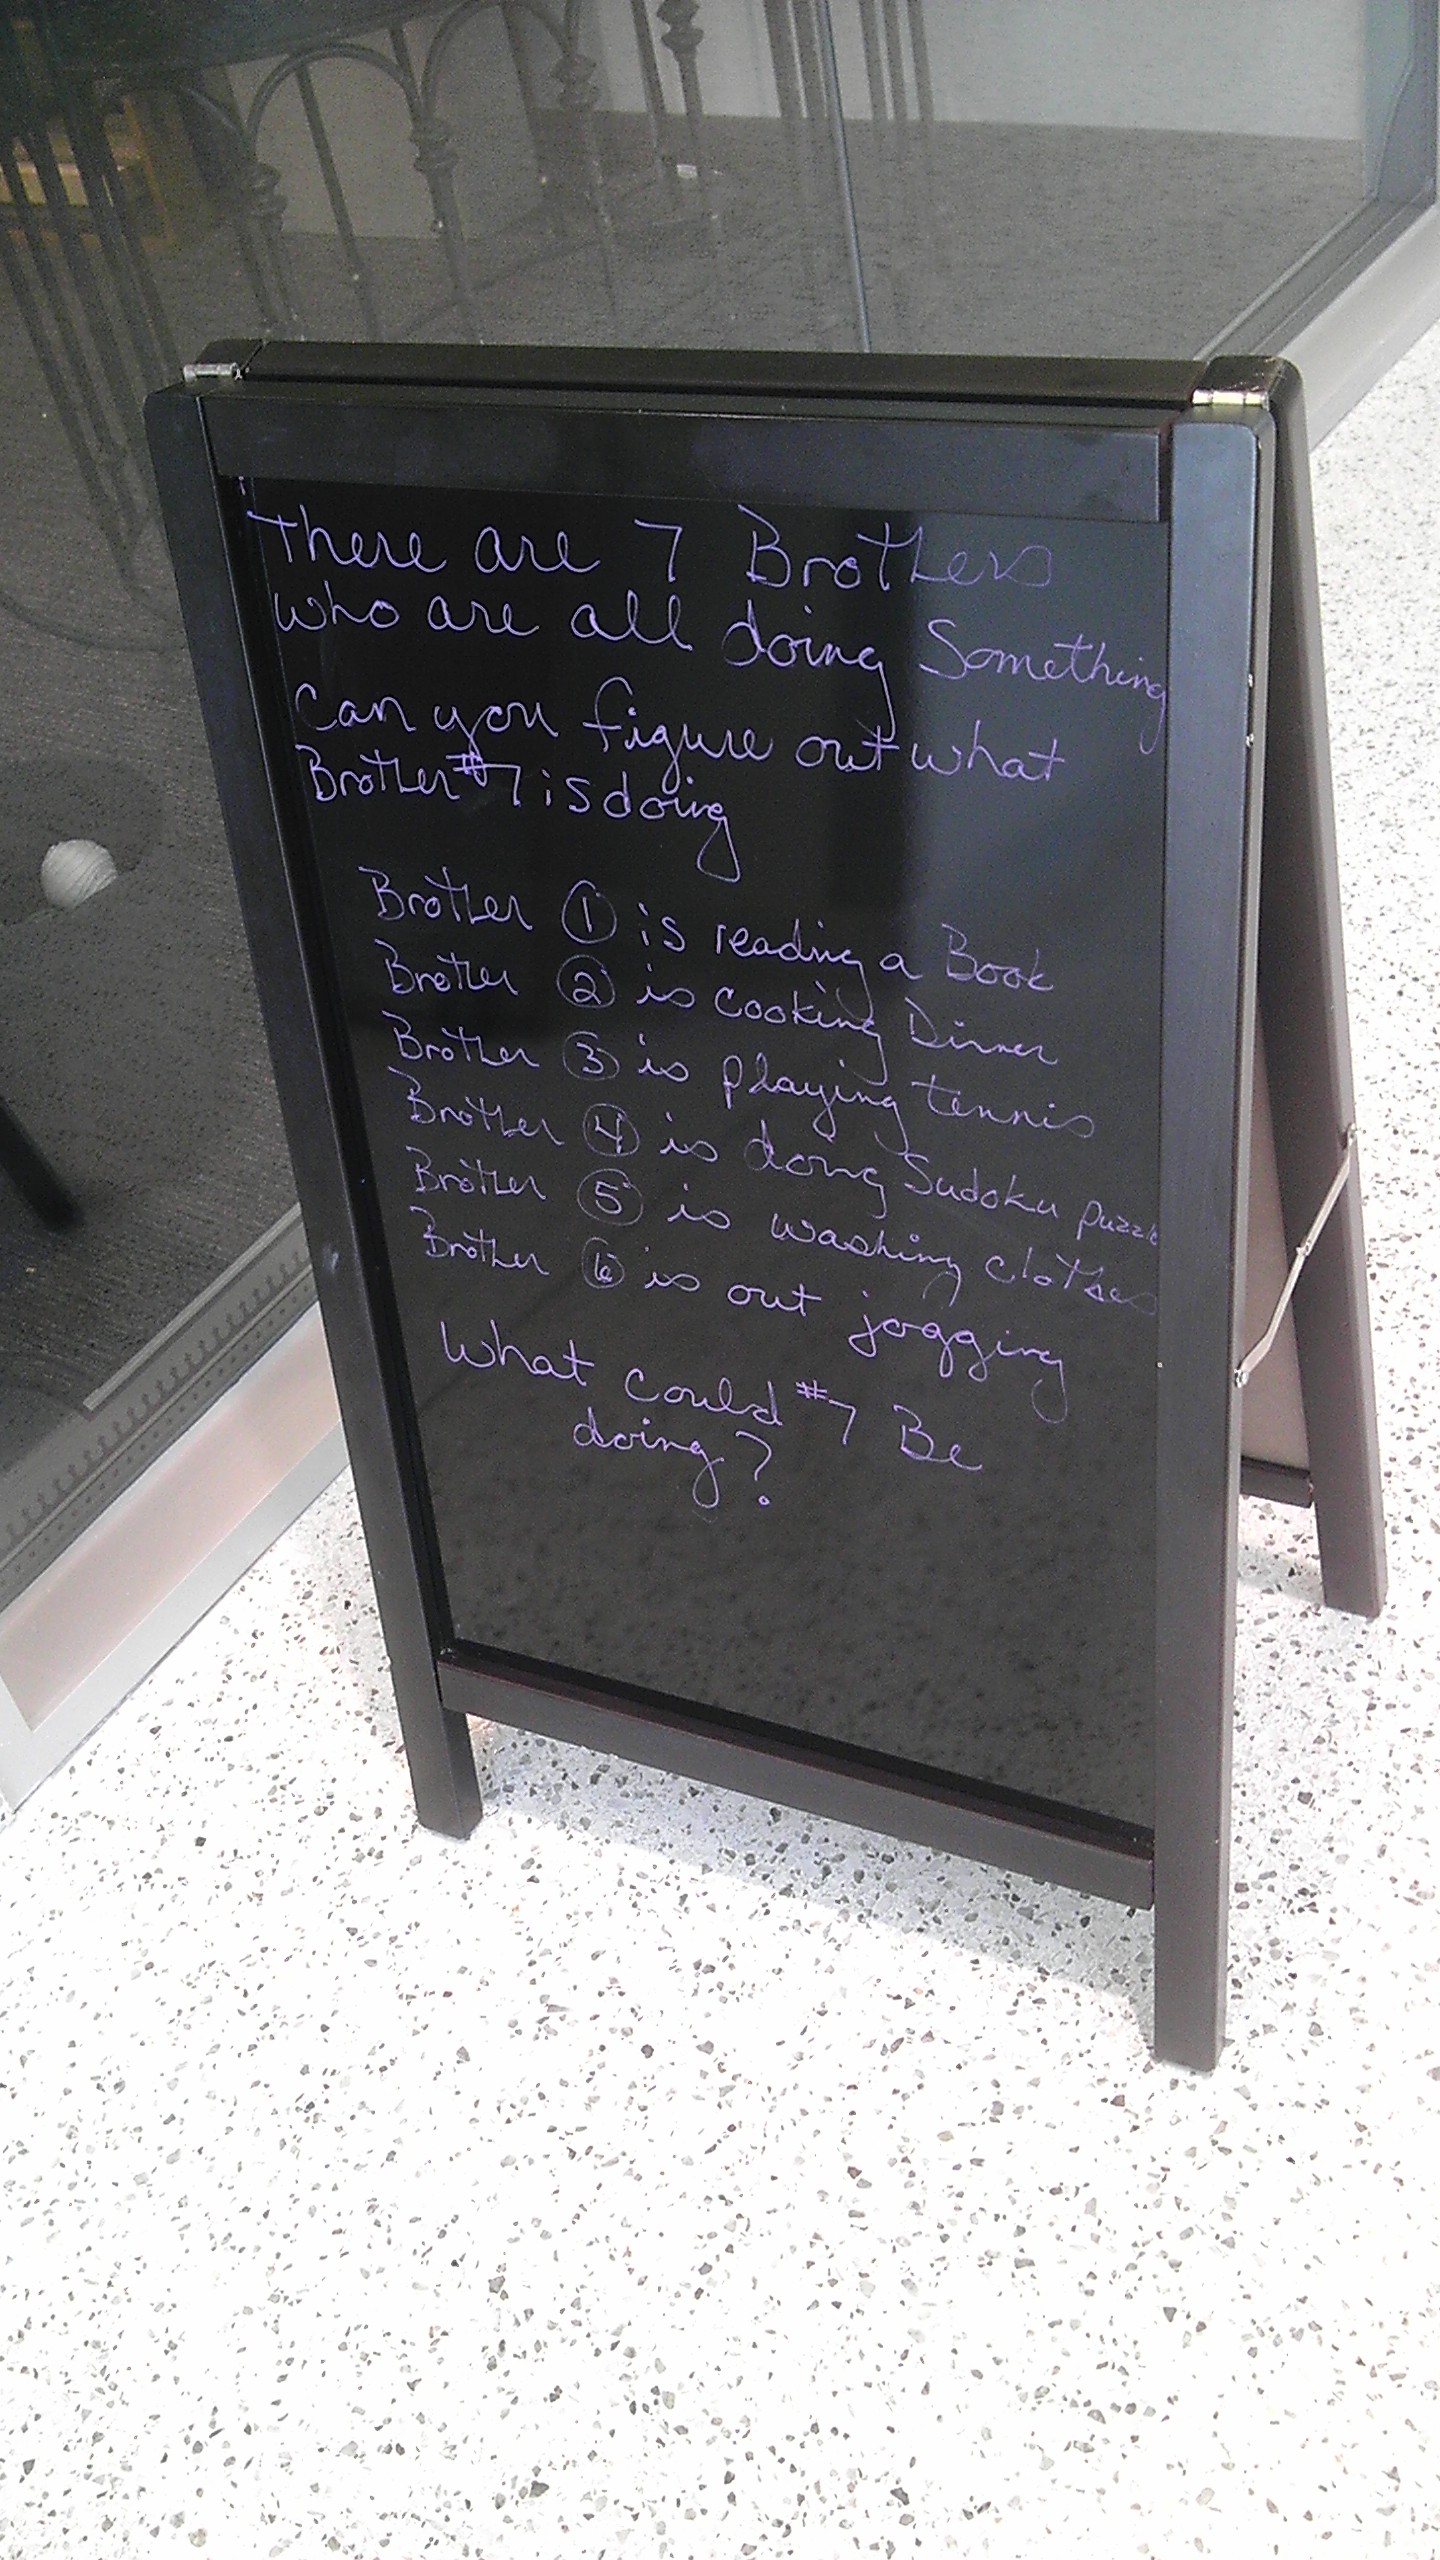 There are 7 Brothers
who are all doing Something
Can you figure out what
Brother #7 is doing
Brother 1 is reading a Book
Brother 2 is cooking Dinner
Brother 3 is playing tennis
Brother 4 is doing Sudoku puzzle
Brother 5 is washing clothes
Brother 6 is out jogging
What could #7 Be
doing?